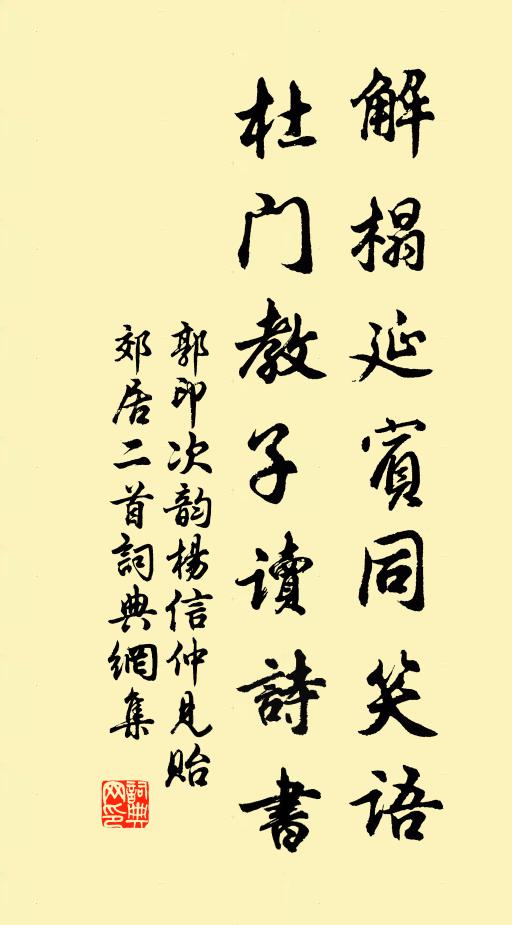 解榻延賓同笑語
杜門教子讀詩書
郭印次韵楊信仲見貽
郊居二首詞典網集
詞典
网印